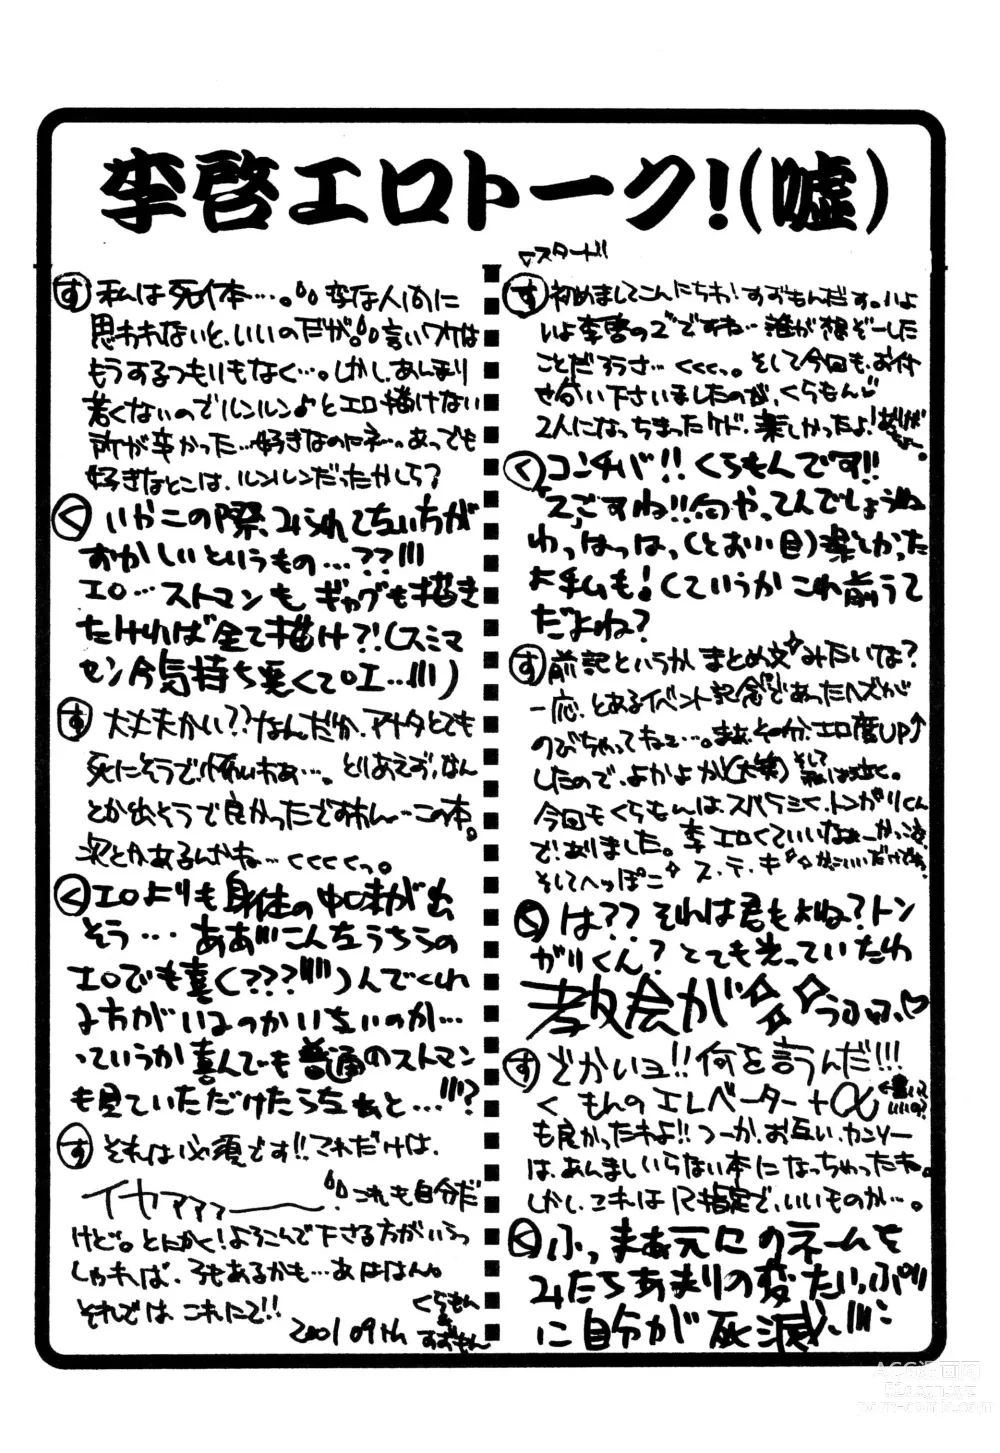 李啓エロトーク!(嘘)
▽スタート!!
す 初めましてこんにちわ!すずもんだす。いよ
いよ李啓の2ですね…誰が想ぞーした
ことだろうさ…くくくっ。そして今回も、お付
せ合い下さいましたのが、くらもん♡
2人になっちまったケド、楽しかったよ!
く コンチバ!!くらもんです!!
「2」ですね!!何やってんでしょうね
わっはっはっ(とおい目)楽しかった
よ私も!(ていうかこれ前うて
だよね?
す 前記というかまとめ文みたいな?
一応、とあるイベント記念であったハズが
のびちゃってねェ…。まぁ、その分、エロ度UP↑
したので、よかよか!(大笑)そして私は泣く。
今回もくらもんは、スバラミく、トンガリくん
で、ありました。李エロくていいなぁー
そしてへっぽこ ス・テ・キ かっこいいだけです。
く は??それは君もよね?トン
ガリくん?とても光っていたわ
教会が うふふ♡
す どかいョ!!何を言うんだ!!!
く もんのエレベーター+α
も良かったわよ!!つーか、お互い、カンソー
は、あんましいらない本になっちゃったね。
しかし、これは12指定で、いいものか…。
く ふっ…まぁ元にのネームを
みたらあまりの変たいっぷり
に自分が死滅、!!!
す 私は死体…。変な人間に
思われないと、いいのだが。言いワケは
もうするつもりもなく…。しかし、あんまり
若くないのでルンルン♪とエロ描けない
所が辛かった…好きなのはネ…。あっでも
好きなとこは、ルンルンだったかしら?
く いやこの際、みられて左いちが
おかしいというもの…??!!!
エロ…ストマンも、ギャグも描き
たければ全て描け?!(スミマ
セン今気持ち悪くてロエ…!!!)
す 大丈夫かい??なんだか、アナタとても
死にそうで怖いわぁ…。とりあえず、なん
とか出そうで良かったですわん…この本。
次とかあるんかね…くくくくっ。
く エロよりも身体の中味が出
そう…ああ!!!こんなうちらの
エロでも喜く???!!!)んでくれ
る方がいるのかいないのか…
っていうか喜んでも普通のストマン
も見ていただけたらなぁと…!!!?
す それは必須です!!これだけは、
イヤァァァー これも自分だ
けど。とにかく!よろこんで下さる方がいらっ
しゃれば、3もあるかも…あははん。
それでは これにて!!
2001 09th くらもん
&
すずもん
ACG漫画网